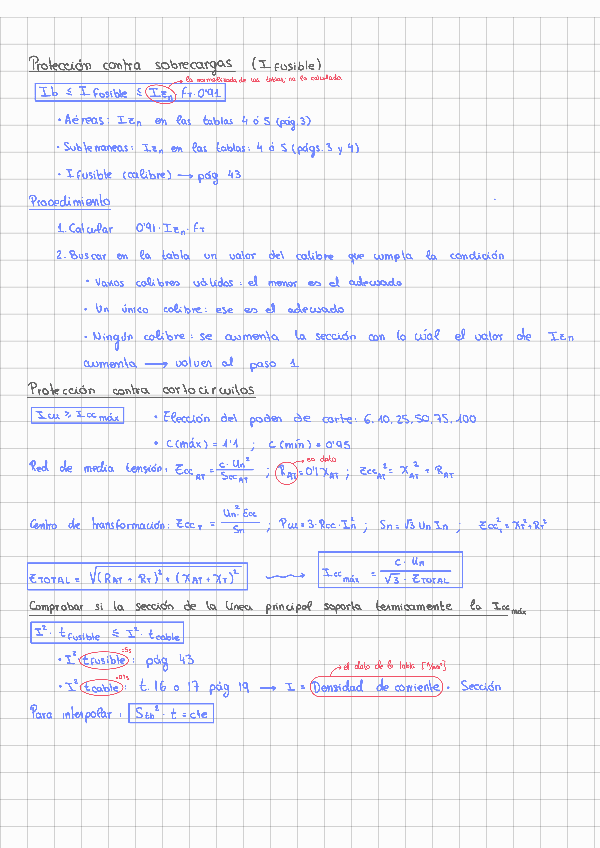 Protección contra sobrecargas (I fusible)
la normalizada de las tablas, no la calculada
Ib ≤ I fusible ≤ Izn · fT · 0'91
· Aéreas: Izn en las tablas 4 ó 5 (pág. 3)
· Subterraneas: Izn en las tablas: 4 ó 5 (págs. 3 y 4)
· I fusible (calibre) → pág 43
Procedimiento
1. Calcular 0'91 · Izn · fT
2. Buscar en la tabla un valor del calibre que cumpla la condición
· Varios calibres válidos: el menor es el adecuado
· Un único calibre: ese es el adecuado
· Ningún calibre: se aumenta la sección con lo cúal el valor de Izn
aumenta → volver al paso 1
Protección contra cortocircuitos
Icu ≥ Icc máx · Elección del poder de corte: 6, 10, 25, 50, 75, 100
· C(máx) = 1'1 ; c(mín) = 0'95
es dato
Red de media tensión: Zcc AT = c · Un² / Scc AT ; RAT = 0'1 XAT ; Zcc AT² = XAT² + RAT
Centro de transformación: Zcc T = Un² · Ecc / Sn ; Pcu = 3 · Rcc · In² ; Sn = √3 Un In ; Zcc T² = XT² + RT²
ZTOTAL = √(RAT + RT)² + (XAT + XT)² → Icc máx = c · Un / √3 · ZTOTAL
Comprobar si la sección de la línea principal soporta termicamente la Icc máx
I² · t fusible ≤ I² · t cable
· I² t fusible: =5s pág 43
el dato de la tabla [A/mm²]
· I² t cable: =0'1s t. 16 o 17 pág 19 → I = Densidad de corriente · Sección
Para interpolar: Sth² · t = cte